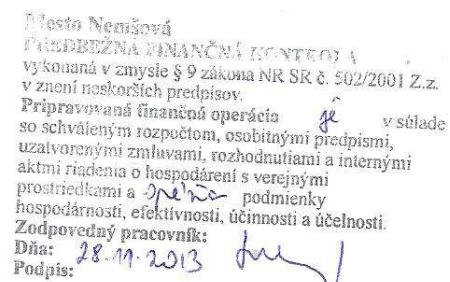 Mesto Nemšová
PREDBEŽNÁ FINANČNÁ KONTROLA
vykonaná v zmysle § 9 zákona NR SR č. 502/2001 Z.z.
v znení neskorších predpisov.
Pripravovaná finančná operácia je v súlade
so schváleným rozpočtom, osobitnými predpismi,
uzatvorenými zmluvami, rozhodnutiami a internými
aktmi riadenia o hospodárení s verejnými
prostriedkami a spĺňa podmienky
hospodárnosti, efektívnosti, účinnosti a účelnosti.
Zodpovedný pracovník:
Dňa: 28.11.2013
Podpis: